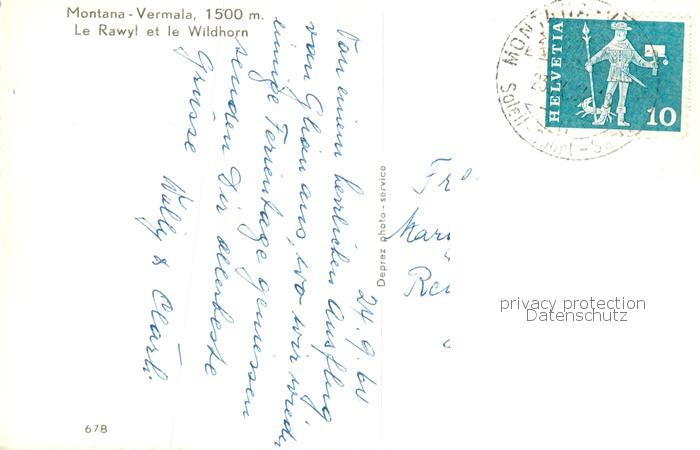 Montana - Vermala, 1500 m.
Le Rawyl et le Wildhorn
24.9.60
Von einem herrlichen Ausflug
von Ghän aus, wo wir wieder
einige Ferientage geniessen
senden Dir allerbeste
Grüsse
Wally & Clärli.
Deprez photo - service
678
HELVETIA
10
Soleil
Fr
Mar
privacy protection
Datenschutz